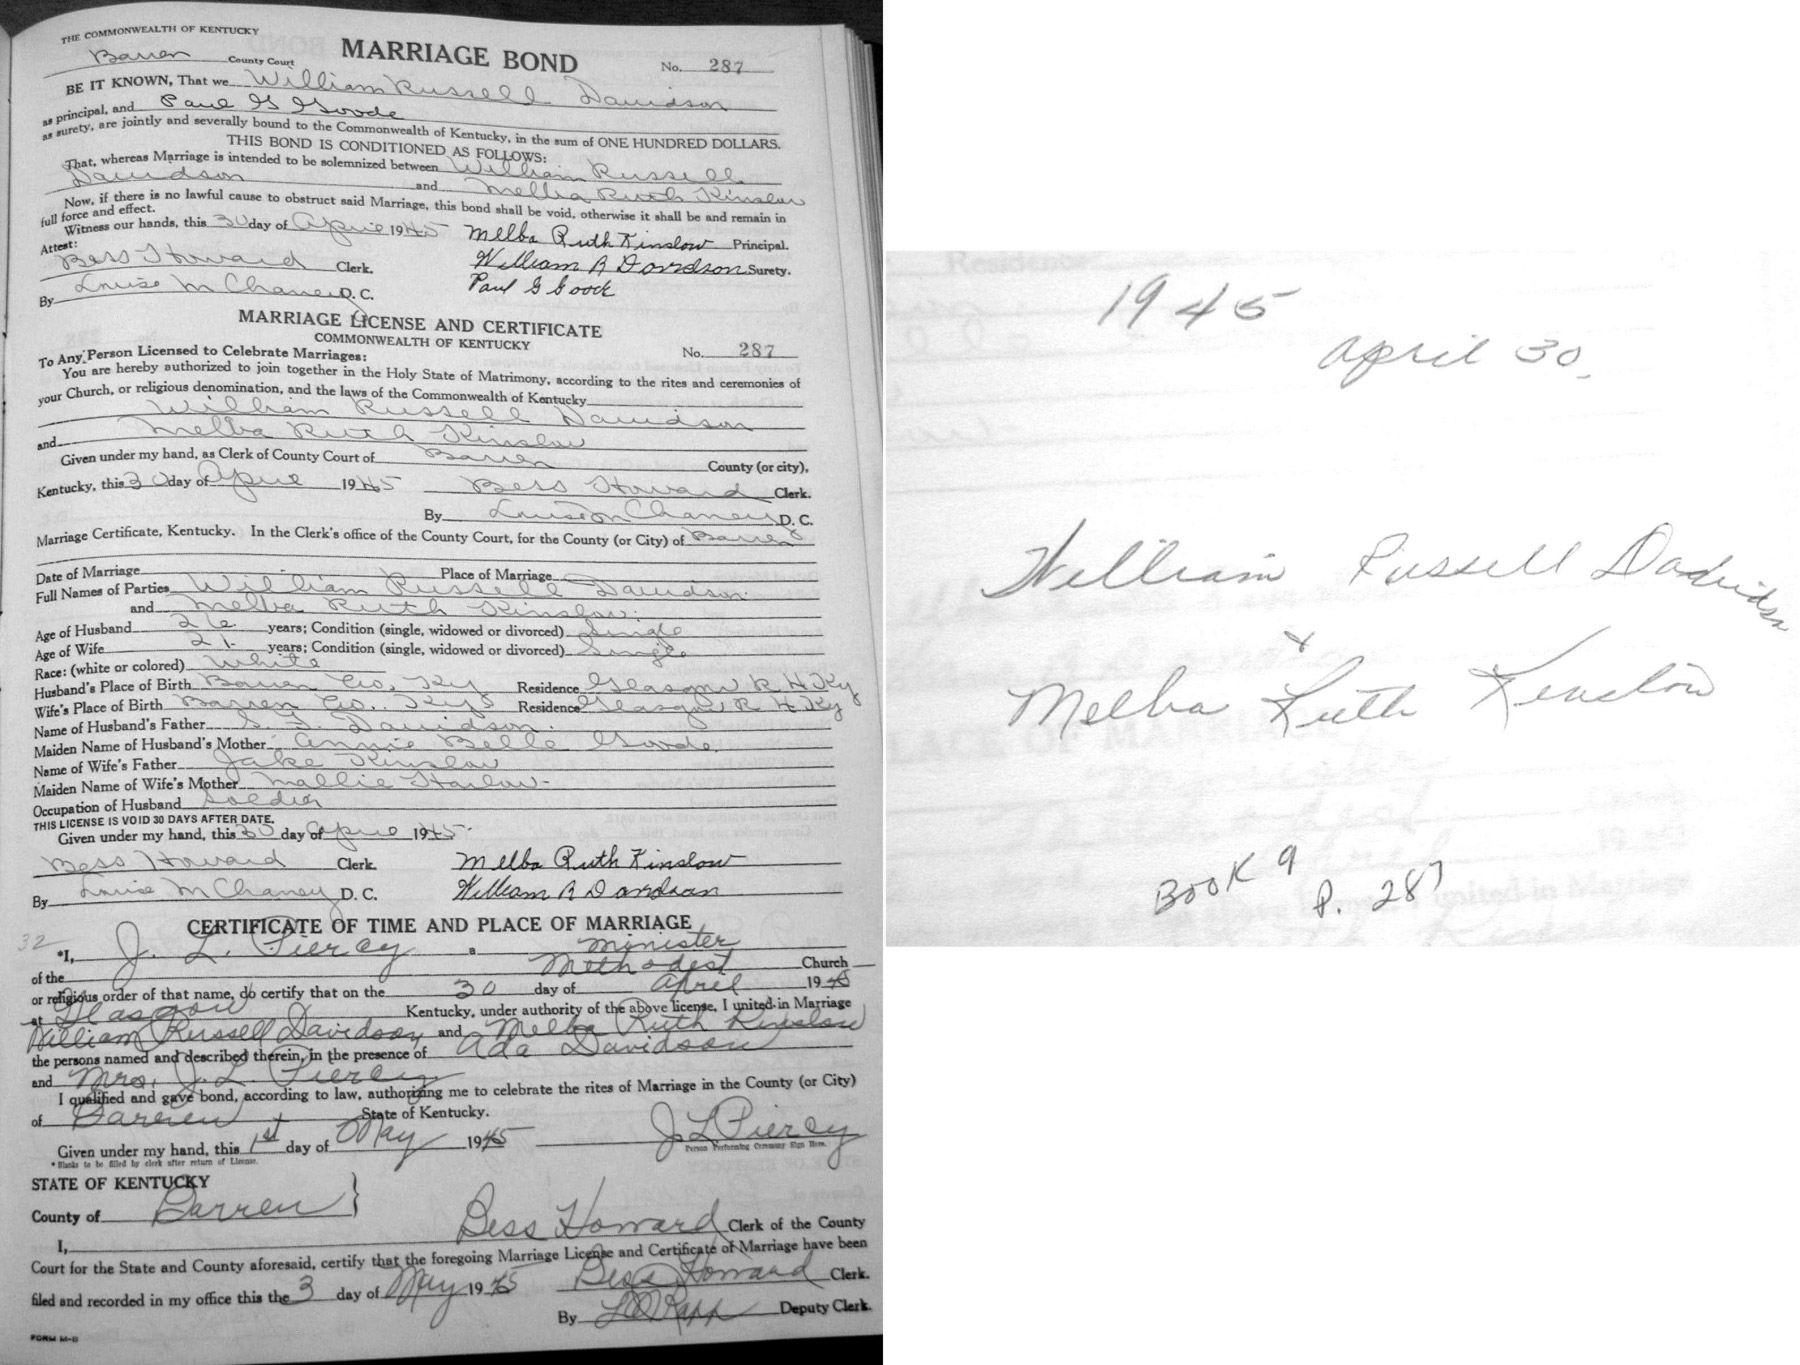 THE COMMONWEALTH OF KENTUCKY
Barren County Court MARRIAGE BOND No. 287
BE IT KNOWN, That we William Russell Davidson
as principal, and Paul G Goode
as surety, are jointly and severally bound to the Commonwealth of Kentucky, in the sum of ONE HUNDRED DOLLARS.
THIS BOND IS CONDITIONED AS FOLLOWS:
That, whereas Marriage is intended to be solemnized between William Russell
Davidson and Melba Ruth Kinslow
Now, if there is no lawful cause to obstruct said Marriage, this bond shall be void, otherwise it shall be and remain in
full force and effect.
Witness our hands, this 30 day of April 1945 Melba Ruth Kinslow Principal.
Attest:
Bess Howard Clerk. William R Davidson Surety.
By Louise McChaney D. C. Paul G Goode
MARRIAGE LICENSE AND CERTIFICATE
COMMONWEALTH OF KENTUCKY
To Any Person Licensed to Celebrate Marriages: No. 287
You are hereby authorized to join together in the Holy State of Matrimony, according to the rites and ceremonies of
your Church, or religious denomination, and the laws of the Commonwealth of Kentucky
William Russell Davidson
and Melba Ruth Kinslow
Given under my hand, as Clerk of County Court of Barren County (or city),
Kentucky, this 30 day of April 1945 Bess Howard Clerk.
By Louise McChaney D. C.
Marriage Certificate, Kentucky. In the Clerk's office of the County Court, for the County (or City) of Barren
Date of Marriage Place of Marriage
Full Names of Parties William Russell Davidson
and Melba Ruth Kinslow
Age of Husband 26 years; Condition (single, widowed or divorced) Single
Age of Wife 21 years; Condition (single, widowed or divorced) Single
Race: (white or colored) White
Husband's Place of Birth Barren Co, Ky Residence Glasgow R 4 Ky
Wife's Place of Birth Barren Co., Ky Residence Glasgow R 4 Ky
Name of Husband's Father Davidson
Maiden Name of Husband's Mother Annie Belle Goode
Name of Wife's Father Jake Kinslow
Maiden Name of Wife's Mother Mallie Harlow
Occupation of Husband Soldier
THIS LICENSE IS VOID 30 DAYS AFTER DATE.
Given under my hand, this 30 day of April 1945
Bess Howard Clerk. Melba Ruth Kinslow
By Louise McChaney D. C. William R Davidson
CERTIFICATE OF TIME AND PLACE OF MARRIAGE
32
*I, J. L. Piercy a Minister
of the Methodist Church
or religious order of that name, do certify that on the 30 day of April 1945
at Glasgow Kentucky, under authority of the above license, I united in Marriage
William Russell Davidson and Melba Ruth Kinslow
the persons named and described therein, in the presence of Ada Davidson
and Mrs. J. L. Piercy
I qualified and gave bond, according to law, authorizing me to celebrate the rites of Marriage in the County (or City)
of Barren State of Kentucky.
Given under my hand, this 1st day of May 1945 J L Piercy
*Blanks to be filled by clerk after return of License. Person Performing Ceremony Sign Here.
STATE OF KENTUCKY
County of Barren
I, Bess Howard Clerk of the County
Court for the State and County aforesaid, certify that the foregoing Marriage License and Certificate of Marriage have been
filed and recorded in my office this the 3 day of May 1945 Bess Howard Clerk.
By Deputy Clerk.
FORM M-B
1945
april 30,
William Russell Davidson
&
Melba Ruth Kinslow
BOOK 9
P. 287